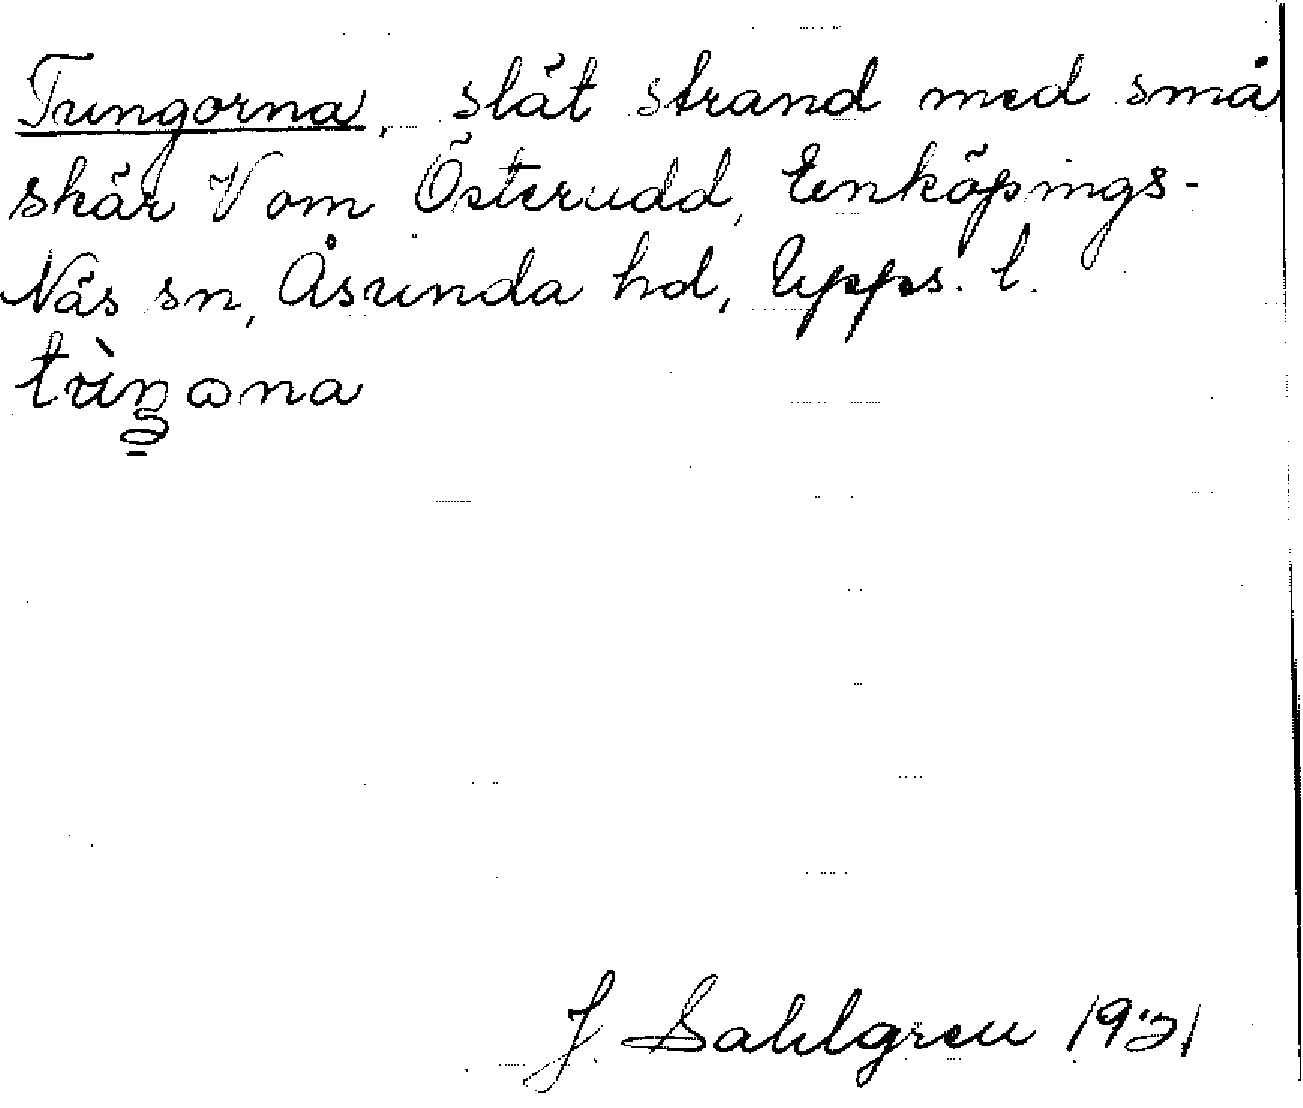 Tungorna, slät strand med små
skär V om Österudd, Enköpings-
Näs sn, Åsunda hd, Upps. l.
J. Sahlgren 1921